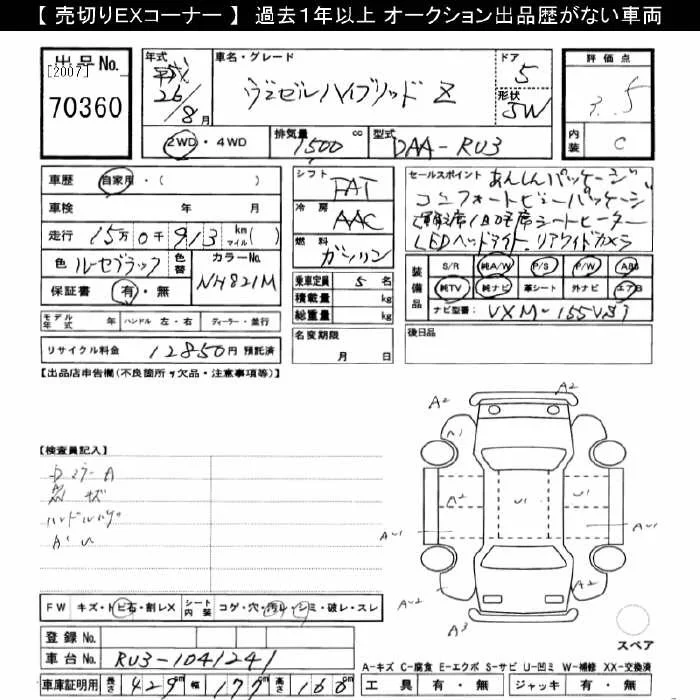 【 売切りEXコーナー 】 過去1年以上 オークション出品歴がない車両
出品No.
[2007]
70360
年式
平成
26/8月
車名・グレード
ヴェゼルハイブリッド Z
ドア
5
形状
5W
評価点
3.5
内装
C
2WD・4WD
排気量
1500 cc
型式
DAA-RU3
車歴 自家用・( )
車検 年 月
走行 15万0千913 km マイル( )
色 ルーセブラック
色替
カラーNo.
NH821M
保証書 有・無
シフト
FAT
冷房
AAC
燃料
ガソリン
乗車定員 5 名
積載量 kg
総重量 kg
セールスポイント あんしんパッケージ
コンフォートビューパッケージ
運転席/助手席シートヒーター
LEDヘッドライト、リアワイドカメラ
装備品
S/R 純A/W P/S P/W ABS
純TV 純ナビ 革シート 外ナビ エアB
ナビ型番: VXM-155VSi
モデル年式 年 ハンドル 左・右 ディーラー・並行
リサイクル料金 12850円 預託済
名変期限
月 日
後日品
【出品店申告欄(不良箇所・欠品・注意事項等)】
【検査員記入】
ハンドル
A2
A2
A1
A2
U1
A-U1
A-U1
A2
A-2
A3
FW キズ・トビ石・割レX シート内装 コゲ・穴・汚レ・シミ・破レ・スレ
スペア
登録No.
車台No. RU3-1041241
A-キズ C-腐食 E-エクボ S-サビ U-凹ミ W-補修 XX-交換済
車庫証明用 長さ 429cm 幅 177cm 高さ 160cm
工具 有・無 ジャッキ 有・無